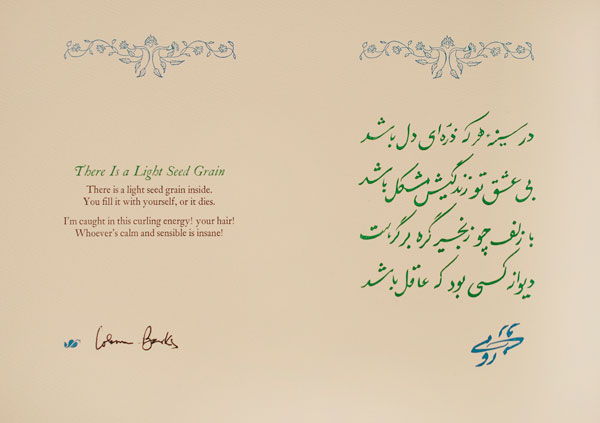 There Is a Light Seed Grain
There is a light seed grain inside.
You fill it with yourself, or it dies.
I'm caught in this curling energy! your hair!
Whoever's calm and sensible is insane!
Coleman Barks
در سینهٔ هر که ذرّه‌ای دل باشد
بی عشق تو زندگیش مشکل باشد
با زلف چو زنجیر گره بر گرهت
دیوانه کسی بود که عاقل باشد